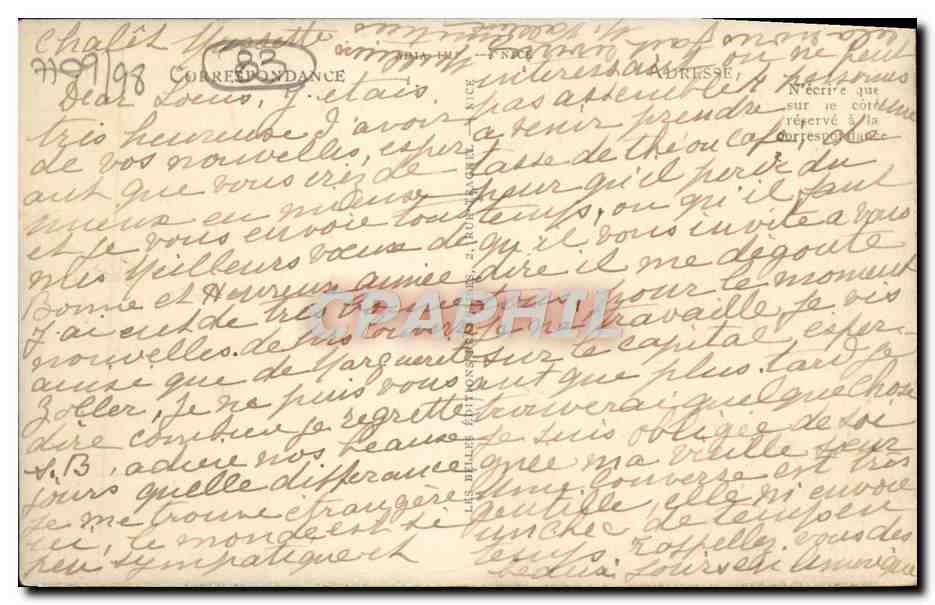 Chalêt Musette
7109/98
83
CORRESPONDANCE
ADRESSE
N'écrire que
sur le côté
réservé à la
correspondance
Dear Louis, j'etais
tris heureuse d'avoir
de vos nouvelles, esper
ant que vous irez de
mieux en mieux
et je vous envoie tous
mes Meilleurs voeux de
Bonne et Heureux année
J'ai eut de tres bonnes
nouvelles de
ainsi que de Marguerite
Zoller, Je ne puis vous
dire combien je regrette
S.B, adieu nos beaux
jours quelle differance
Je me trouve étrangère
ici, le monde est si
peu sympatique et
interessant, on ne peut
pas assembler personnes
a venir prendre une
tasse de thé ou café,
peur qu'il perir du
temps, ou qu'il faut
qu'il vous invite a vais
dire il me dégoute
tous, pour le moment
je ne travaille je vis
sur le capital, esper-
ant que plus tard je
trouverai quelque chose
Je suis obligée de soi
gnée ma vieille soeur
Une converse est trés
gentille, elle m'envoie
un chec de temps en
temps. Rappellez vous des
jours en Amerique
LES BELLES ÉDITIONS 2, RUE TRACHEL NICE
NICE
CPAPHIL